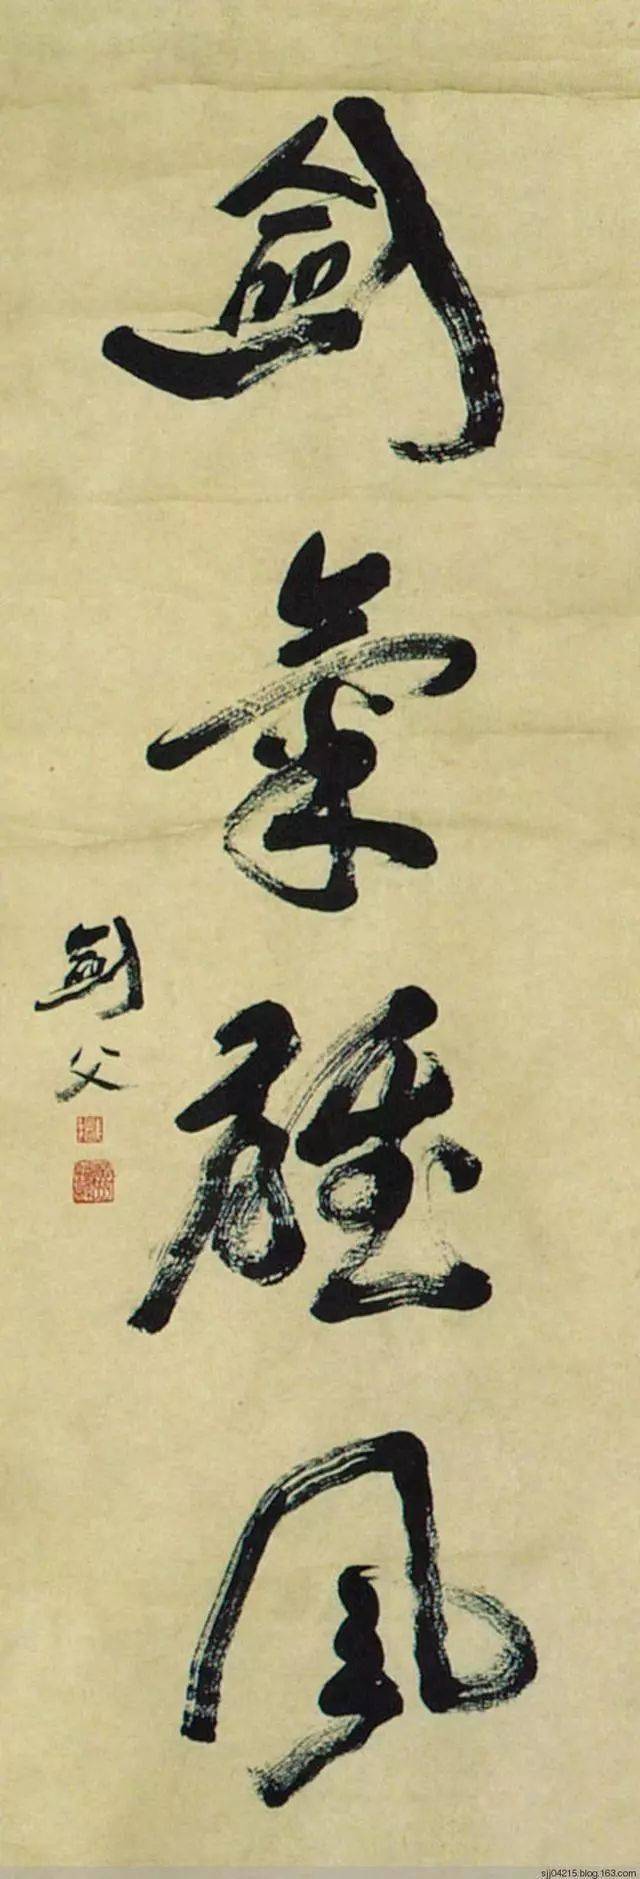 劍氣雄風
劍父
sjj04215.blog.163.com